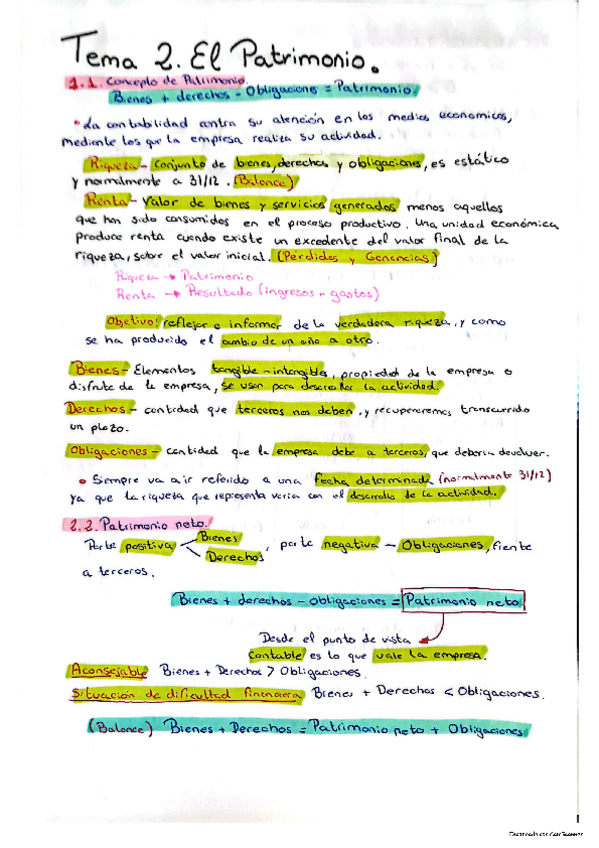 Tema 2. El Patrimonio.
2.1. Concepto de Patrimonio.
Bienes + derechos - Obligaciones = Patrimonio
• La contabilidad centra su atención en los medios económicos,
mediante los que la empresa realiza su actividad.
Riqueza - Conjunto de bienes, derechos y obligaciones, es estático
y normalmente a 31/12. (Balance)
Renta - Valor de bienes y servicios generados menos aquellos
que han sido consumidos en el proceso productivo. Una unidad económica
produce renta cuando existe un excedente del valor final de la
riqueza, sobre el valor inicial. (Pérdidas y Ganancias)
Riqueza → Patrimonio
Renta → Resultado (ingresos - gastos)
Objetivo: reflejar e informar de la verdadera riqueza, y como
se ha producido el cambio de un año a otro.
Bienes - Elementos tangible - intangibles, propiedad de la empresa o
disfrute de la empresa, se usan para desarrollar la actividad.
Derechos - cantidad que terceros nos deben, y recuperaremos transcurrido
un plazo.
Obligaciones - cantidad que la empresa debe a terceros, que debería devolver.
• Siempre va a ir referido a una fecha determinada (normalmente 31/12)
ya que la riqueza que representa varía con el desarrollo de la actividad.
2.2. Patrimonio neto.
Parte positiva < Bienes
Derechos, parte negativa - Obligaciones, frente
a terceros.
Bienes + derechos - obligaciones = Patrimonio neto
Desde el punto de vista
contable es lo que vale la empresa.
Aconsejable Bienes + Derechos > Obligaciones.
Situación de dificultad financiera Bienes + Derechos < Obligaciones.
(Balance) Bienes + Derechos = Patrimonio neto + Obligaciones